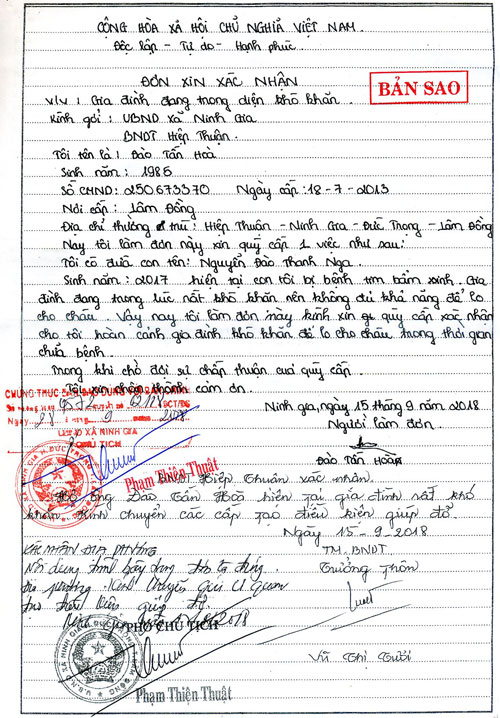 CỘNG HÒA XÃ HỘI CHỦ NGHĨA VIỆT NAM.
Độc lập - Tự do - Hạnh phúc.
ĐƠN XIN XÁC NHẬN
BẢN SAO
V/v : Gia đình đang trong diện khó khăn.
Kính gởi : UBND xã Ninh Gia
BNDT Hiệp Thuận.
Tôi tên là : Đào Tấn Hoà
Sinh năm : 1985
Số CMND: 250.673370 Ngày cấp: 18-7-2013
Nơi cấp : Lâm Đồng
Địa chỉ thường trú : Hiệp Thuận - Ninh Gia - Đức Trọng - Lâm Đồng
Nay tôi làm đơn này xin quý cấp 1 việc như sau:
Tôi có đứa con tên: Nguyễn Đào Thanh Nga.
Sinh năm : 2017 hiện tại con tôi bị bệnh tim bẩm sinh. Gia
đình đang trong lúc rất khó khăn nên không đủ khả năng để lo
cho cháu. Vậy nay tôi làm đơn này kính xin quý cấp xác nhận
cho tôi hoàn cảnh gia đình khó khăn để lo cho cháu trong thời gian
chữa bệnh.
Trong khi chờ đợi sự chấp thuận của quý cấp.
Tôi xin chân thành cảm ơn.
CHỨNG THỰC
Ngày 28 tháng 9 năm 2018
UBND XÃ NINH GIA
CHỦ TỊCH
Phạm Thiện Thuật
Ninh gia, ngày 15 tháng 9 năm 2018
Người làm đơn.
Đào Tấn Hoà
BNDT Hiệp Thuận xác nhận.
Hộ ông Đào Tấn Hoà hiện tại gia đình rất khó
khăn. Kính chuyển các cấp tạo điều kiện giúp đỡ.
Ngày 15-9-2018
TM. BNDT
Trưởng thôn
Vũ Thị Tươi
XÁC NHẬN ĐỊA PHƯƠNG
Nội dung trình bày
địa phương. Kính chuyển
PHÓ CHỦ TỊCH
Phạm Thiện Thuật